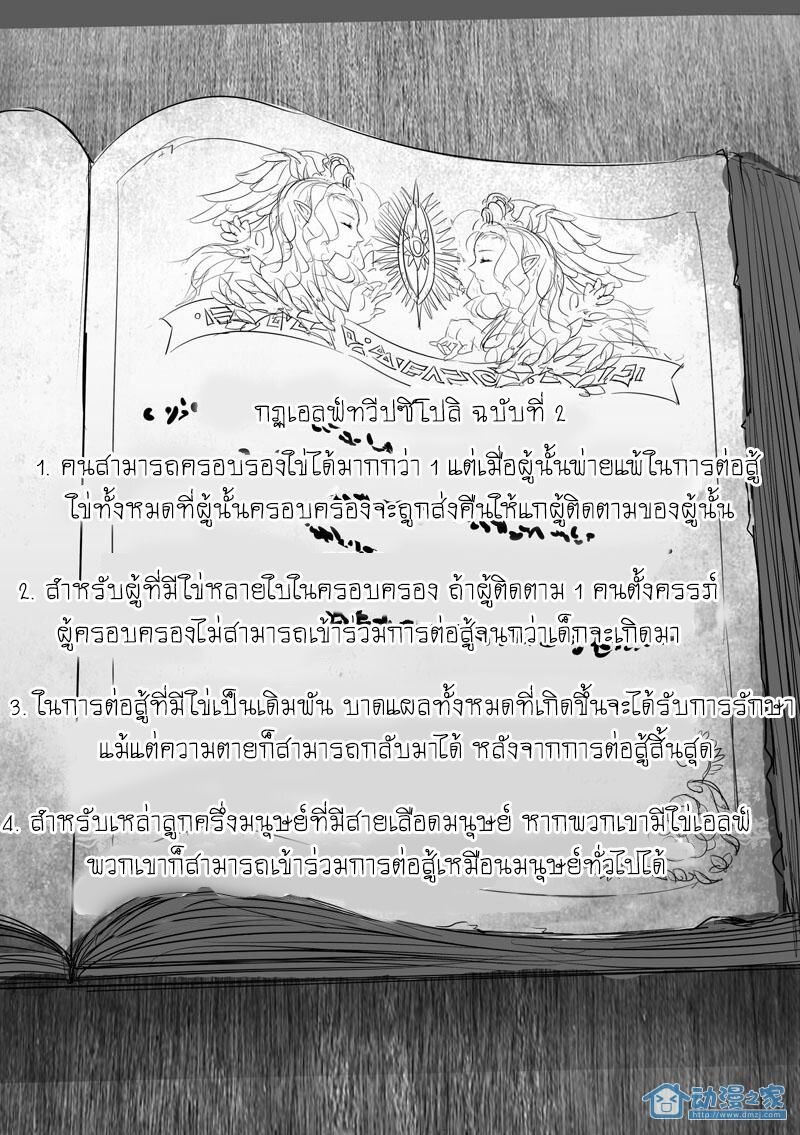 กฏเอลฟ์ทวีปซิโปลิ ฉบับที่ 2
1. คนสามารถครอบรองใข่ได้มากกว่า 1 แต่เมื่อผู้นั้นพ่ายแพ้ในการต่อสู้
ใข่ทั้งหมดที่ผู้นั้นครอบครองจะถูกส่งคืนให้แกผู้ติดตามของผู้นั้น
2. สำหรับผู้ที่มีใข่หลายใบในครอบครอง ถ้าผู้ติดตาม 1 คนตั้งครรภ์
ผู้ครอบครองไม่สามารถเข้าร่วมการต่อสู้จนกว่าเด็กจะเกิดมา
3. ในการต่อสู้ที่มีใข่เป็นเดิมพัน บาดแผลทั้งหมดที่เกิดขึ้นจะได้รับการรักษา
แม้แต่ความตายก็สามารถกลับมาได้ หลังจากการต่อสู้สิ้นสุด
4. สำหรับเหล่าลูกครึ่งมนุษย์ที่มีสายเลือดมนุษย์ หากพวกเขามีใข่เอลฟ์
พวกเขาก็สามารถเข้าร่วมการต่อสู้เหมือนมนุษย์ทั่วไปได้
动漫之家
www.dmzj.com